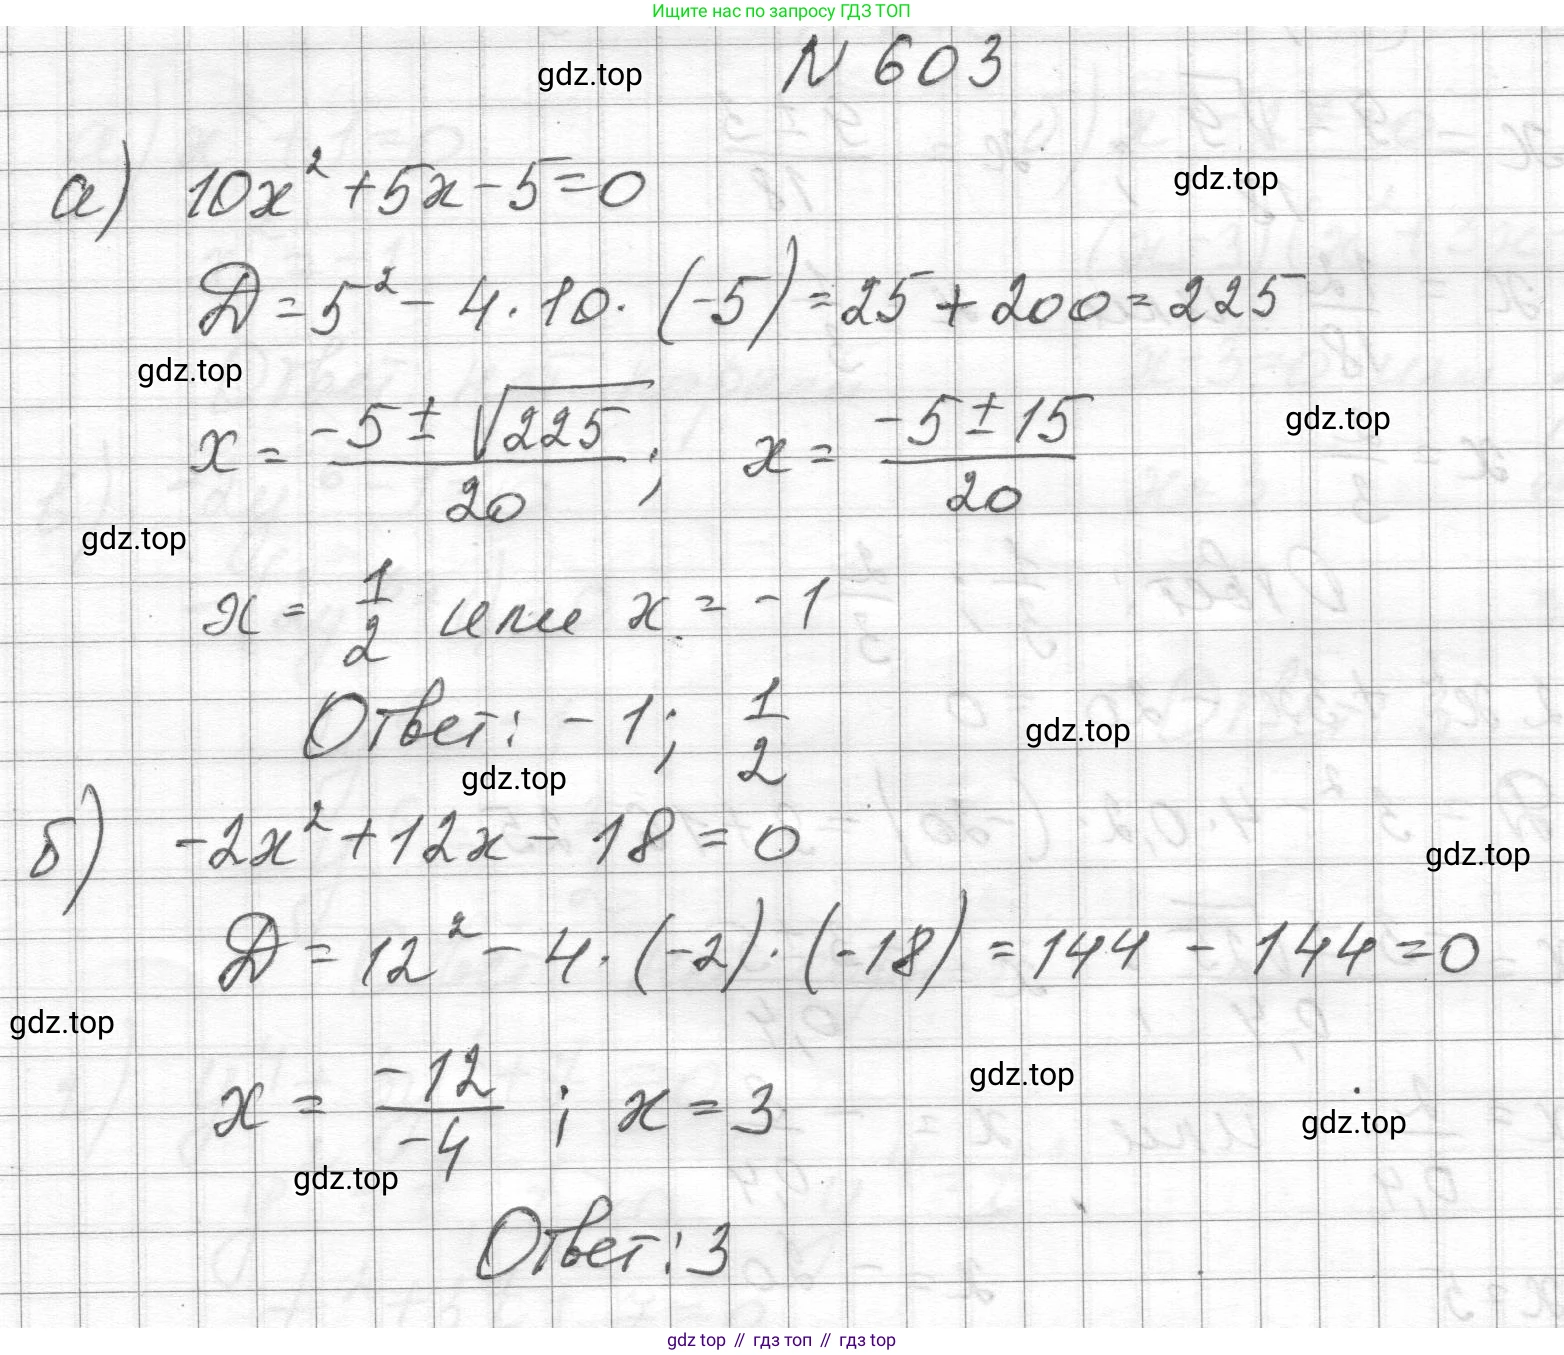 Ищите нас по запросу ГДЗ ТОП
N 603
gdz.top
а) 10x² + 5x - 5 = 0
gdz.top
D = 5² - 4 · 10 · (-5) = 25 + 200 = 225
gdz.top
x = (-5 ± √225)/20 ; x = (-5 ± 15)/20
gdz.top
gdz.top
x = 1/2 или x = -1
Ответ: -1; 1/2
gdz.top
gdz.top
б) -2x² + 12x - 18 = 0
gdz.top
D = 12² - 4 · (-2) · (-18) = 144 - 144 = 0
gdz.top
x = -12/-4 ; x = 3
gdz.top
gdz.top
gdz.top
Ответ: 3
gdz top // гдз топ // гдз top